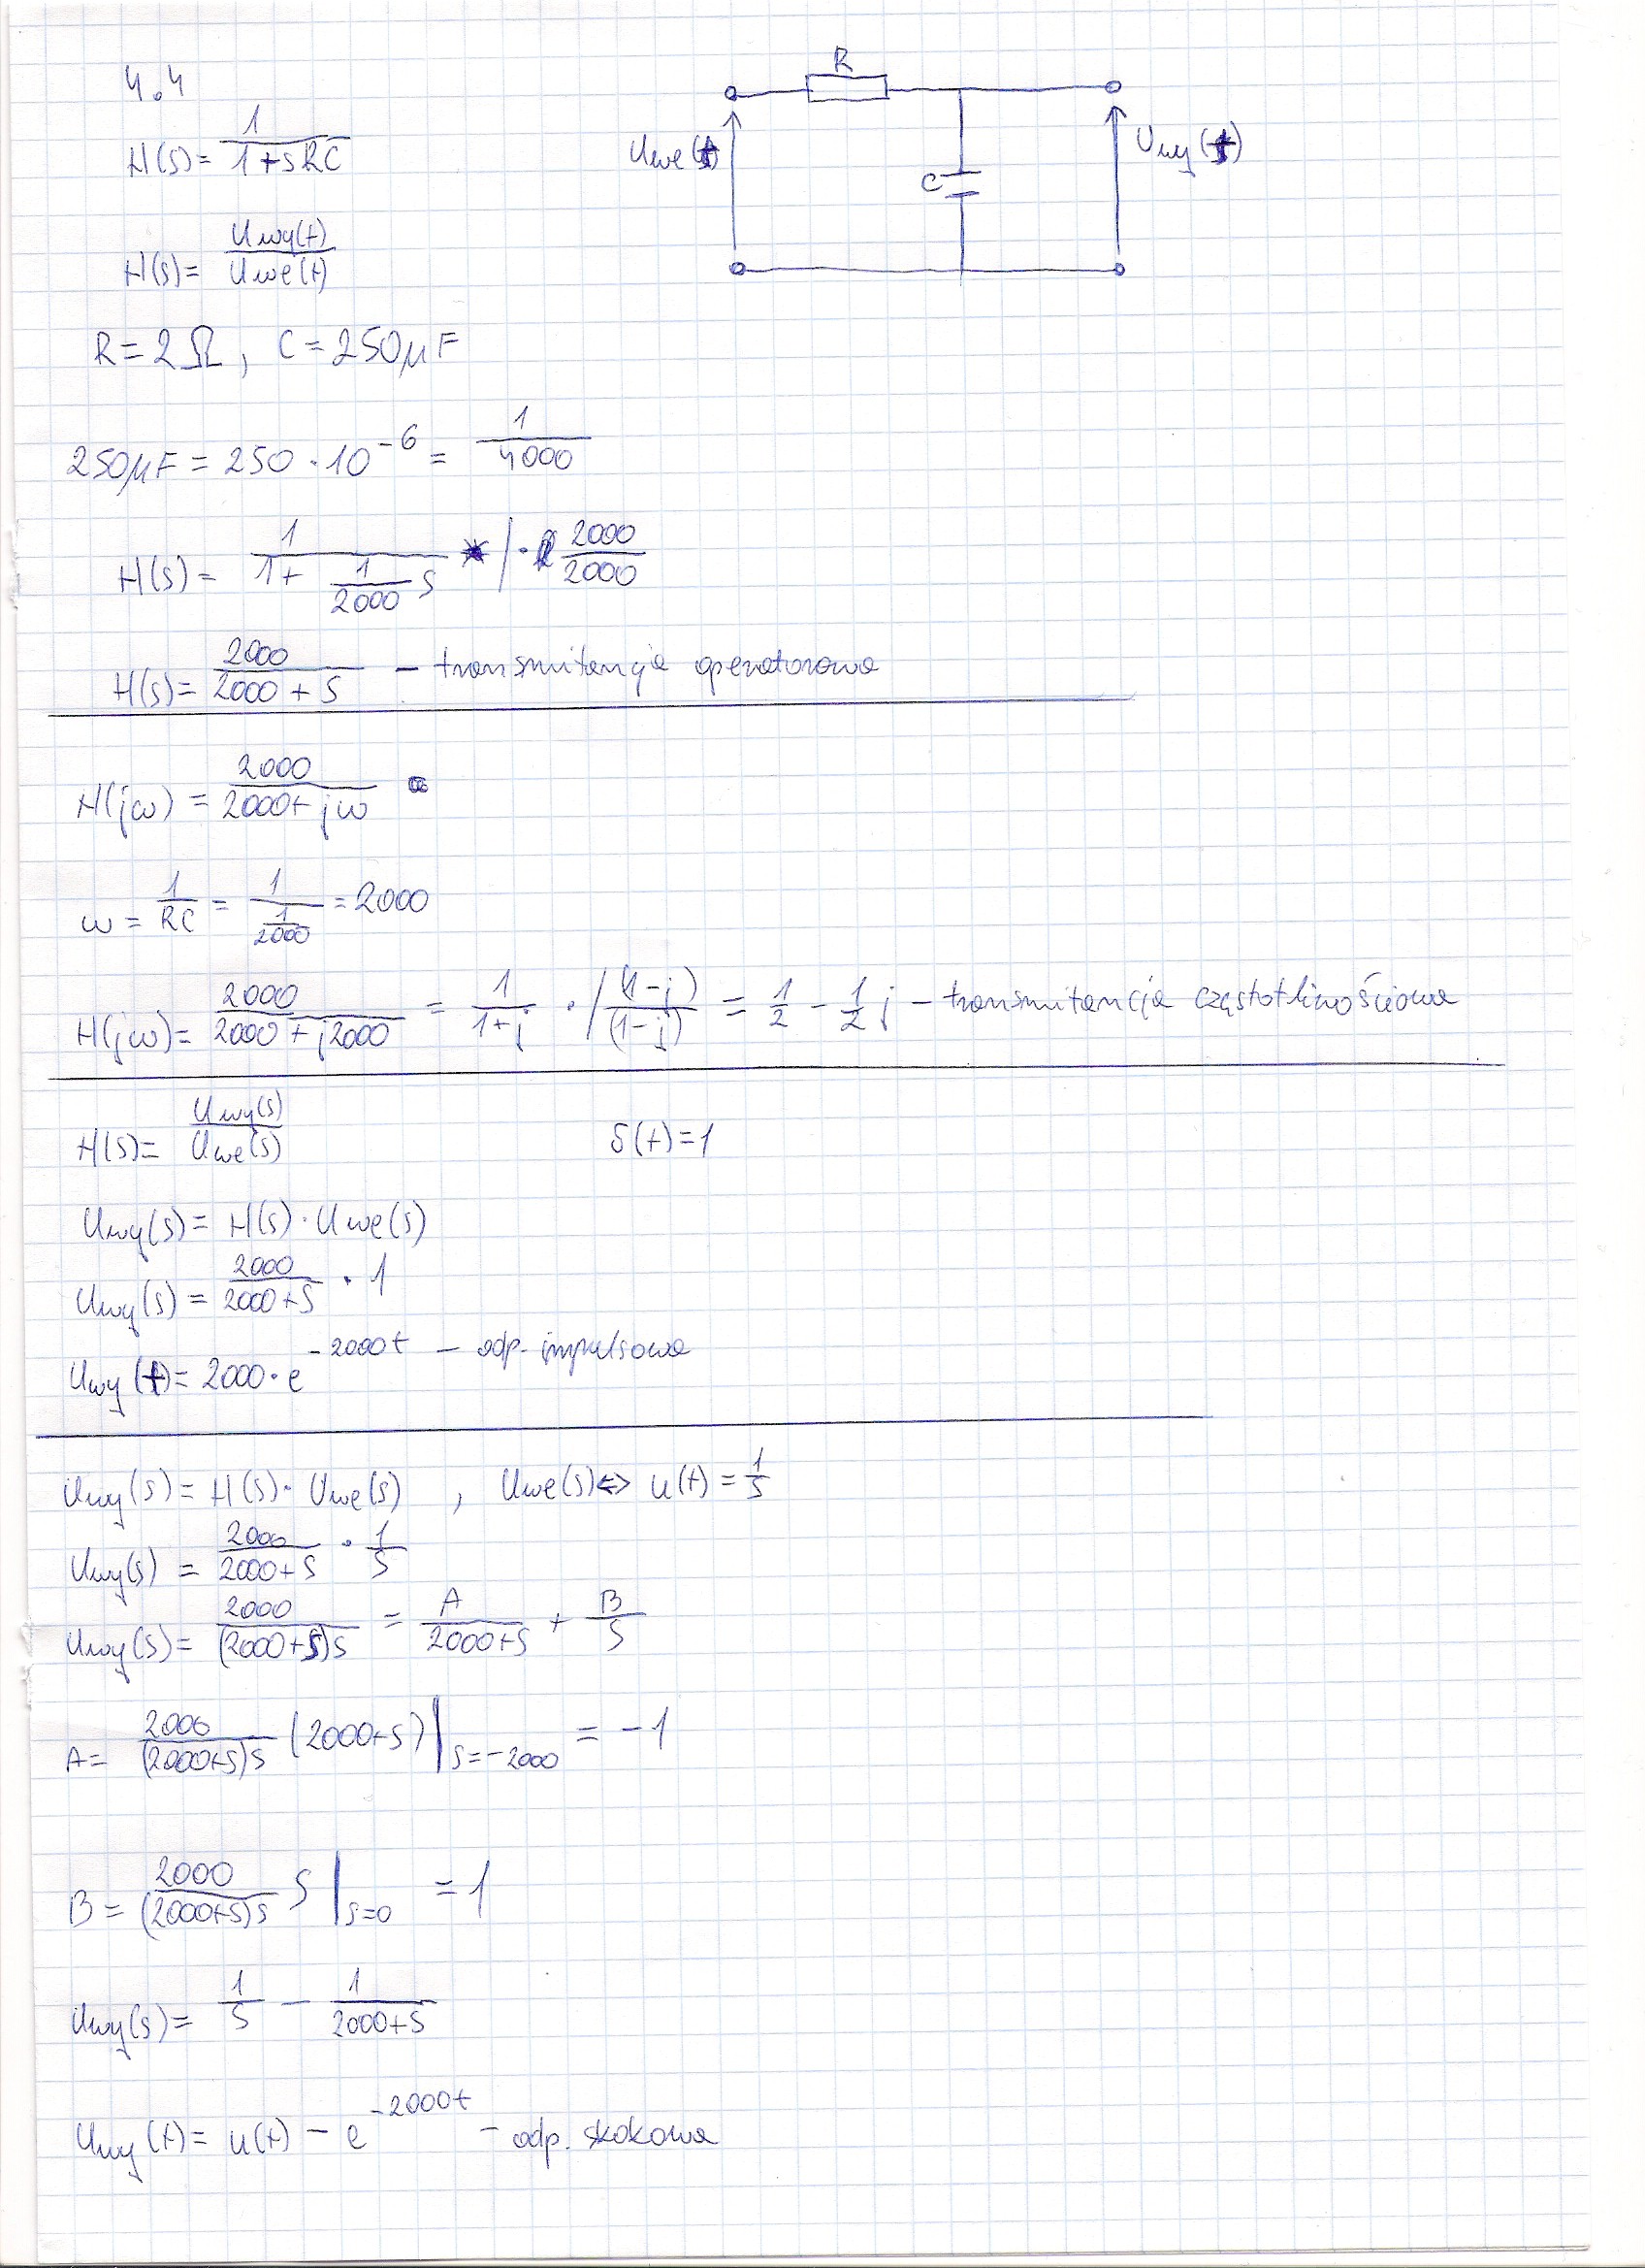 4.4
R
H(s) = 1/(1+sRC)
Uwe(t)
C
Uwy(t)
H(s) = Uwy(t)/Uwe(t)
R=2Ω, C=250μF
250μF = 250 · 10^-6 = 1/4000
H(s) = 1/(1+ 1/2000 s) /· 2000/2000
H(s) = 2000/(2000+s) – transmitancja operatorowa
H(jω) = 2000/(2000+jω)
ω = 1/RC = 1/(1/2000) = 2000
H(jω) = 2000/(2000+j2000) = 1/(1+j) · /(1-j)/(1-j) = 1/2 - 1/2 j – transmitancja częstotliwościowa
H(s) = Uwy(s)/Uwe(s)
δ(t)=1
Uwy(s) = H(s) · Uwe(s)
Uwy(s) = 2000/(2000+s) · 1
Uwy(t) = 2000 · e^-2000t – odp. impulsowa
Uwy(s) = H(s) · Uwe(s) , Uwe(s) ⇔ u(t) = 1/s
Uwy(s) = 2000/(2000+s) · 1/s
Uwy(s) = 2000/((2000+s)s) = A/(2000+s) + B/s
A = 2000/((2000+s)s) (2000+s) |s=-2000 = -1
B = 2000/((2000+s)s) s |s=0 = 1
Uwy(s) = 1/s - 1/(2000+s)
Uwy(t) = u(t) - e^-2000t – odp. skokowa